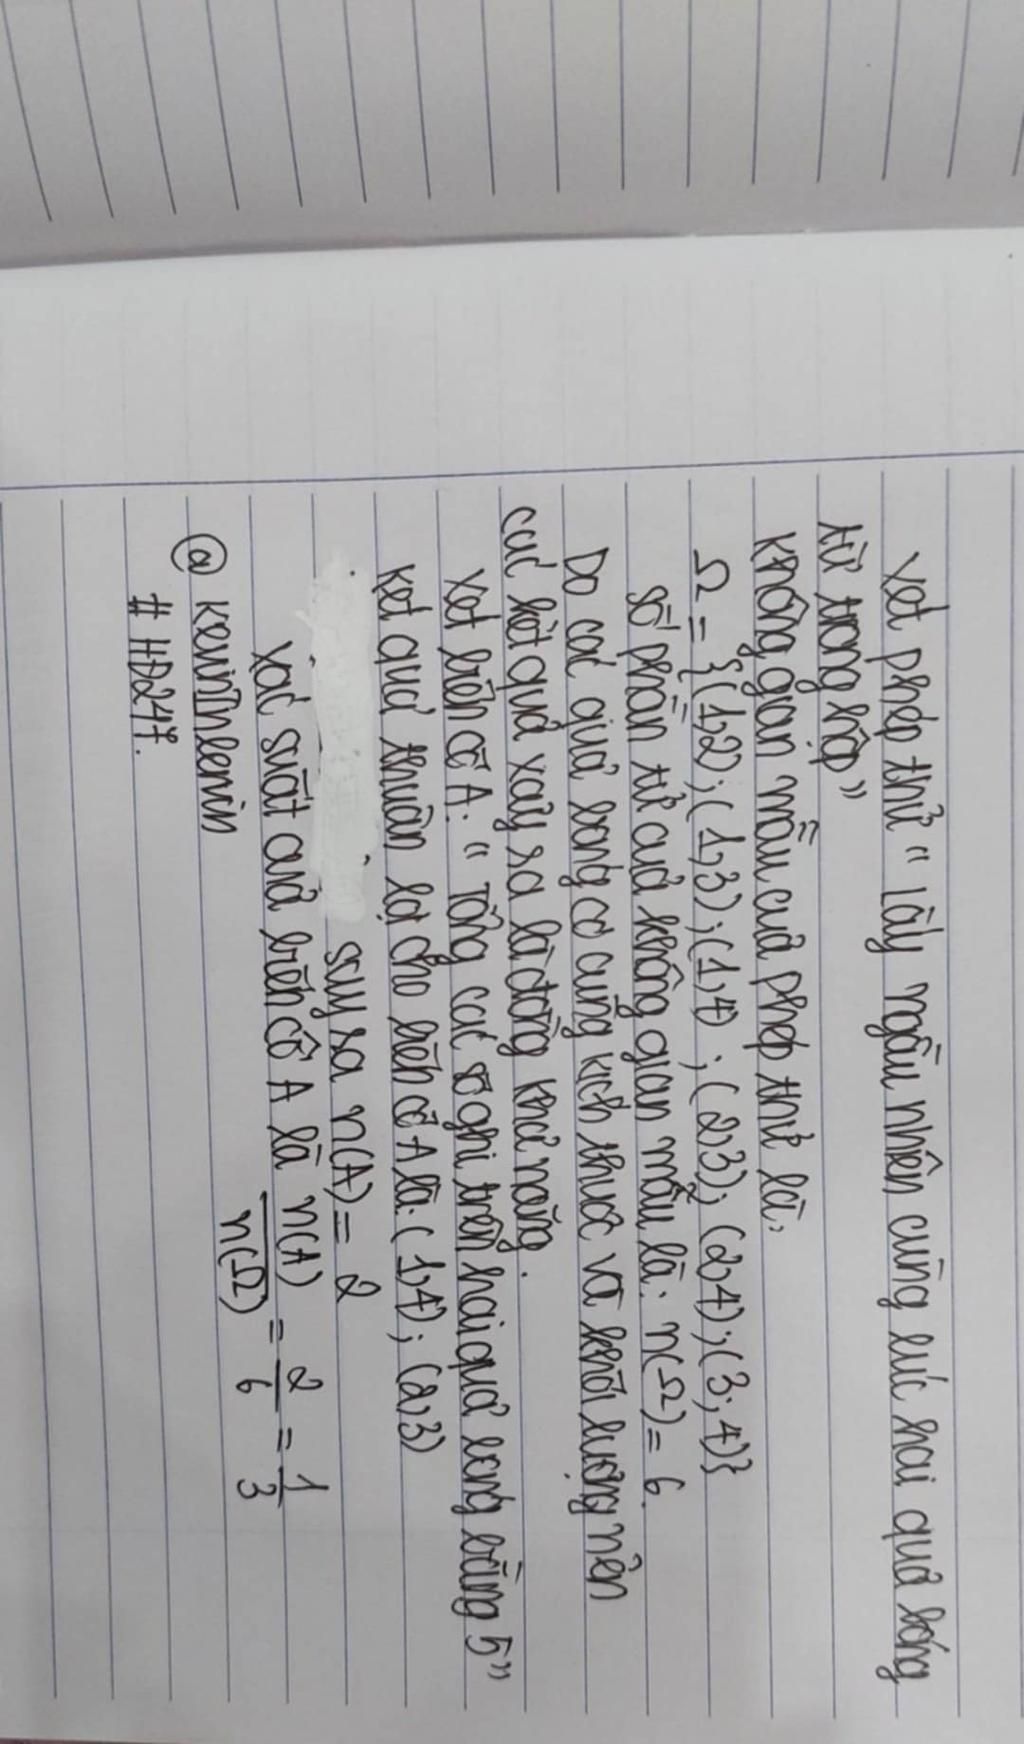 Xét phép thử "Lấy ngẫu nhiên cùng lúc hai quả bóng
từ trong hộp"
Không gian mẫu của phép thử là:
Ω = {(1;2); (1;3); (1;4); (2;3); (2;4); (3;4)}
Số phần tử của không gian mẫu là: n(Ω) = 6.
Do các quả bóng có cùng kích thước và khối lượng nên
các kết quả xảy ra là đồng khả năng.
Xét biến cố A: "Tổng các số ghi trên hai quả bóng bằng 5"
Kết quả thuận lợi cho biến cố A là: (1;4); (2;3)
suy ra n(A) = 2
Xác suất của biến cố A là n(A)/n(Ω) = 2/6 = 1/3
@ kevinlinlenin
# HĐ247.